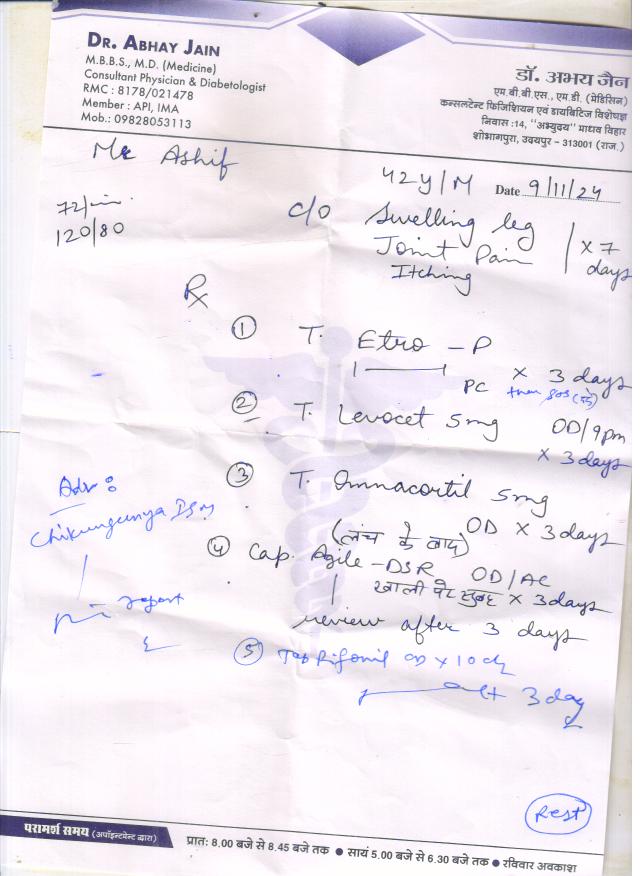 DR. ABHAY JAIN
M.B.B.S., M.D. (Medicine)
Consultant Physician & Diabetologist
RMC : 8178/021478
Member : API, IMA
Mob.: 09828053113
डॉ. अभय जैन
एम.बी.बी.एस., एम.डी. (मेडिसिन)
कन्सलटेन्ट फिजिशियन एवं डायबिटिज विशेषज्ञ
निवास :14, "अभ्युदय" माधव विहार
शोभागपुरा, उदयपुर - 313001 (राज.)
Mr Ashif
42y/M Date 9/11/24
72/min.
120/80
c/o Swelling leg
Joint Pain
Itching
x 7 days
Rx
① T. Etro - P
1 — 1 PC x 3 days
then sos
② T. Levocet 5mg OD/9pm
x 3 days
③ T. Omnacortil 5mg
(लंच के बाद) OD x 3 days
④ Cap. Agile - DSR OD/AC
खाली पेट सुबह x 3 days
review after 3 days
Adv:
Chikungunya
report
⑤ Tab x 10
3 day
Rest
परामर्श समय (अपॉइन्टमेन्ट द्वारा)
प्रातः 8.00 बजे से 8.45 बजे तक ● सायं 5.00 बजे से 6.30 बजे तक ● रविवार अवकाश